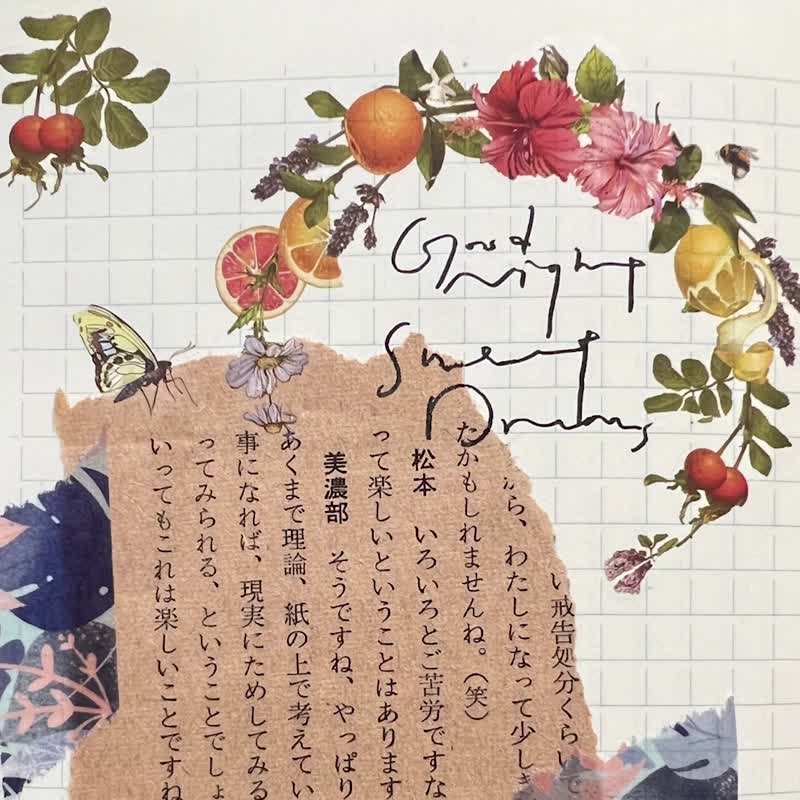 Good
night
Sweet
Dreams,
い戒告処分くらいで
から、わたしになって少し
たかもしれませんね。（笑）
松本　いろいろとご苦労ですな
って楽しいということはあります
美濃部　そうですね、やっぱり
あくまで理論、紙の上で考えてい
事になれば、現実にためしてみる
ってみられる、ということでしょ
いってもこれは楽しいことですね